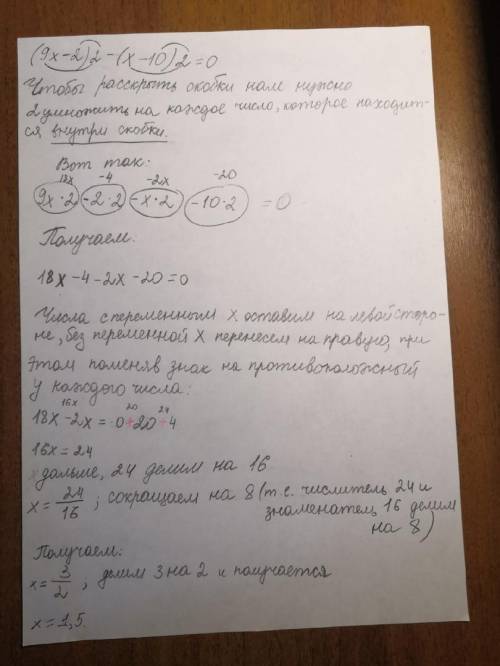 (9x-2)2-(x-10)2=0
Чтобы расскрыть скобки нам нужно
2 умножить на каждое число, которое находит-
ся внутри скобки.
Вот так:
18x -4 -2x -20
9x·2 -2·2 -x·2 -10·2 =0
Получаем:
18x-4-2x-20=0
Числа с переменным x оставим на левой сторо-
не, без переменной x перенесем на правую, при
этом поменяв знак на противоположный
у каждого числа:
16x 20 24
18x-2x=0+20+4
16x=24
дальше, 24 делим на 16
x=24/16; сокращаем на 8 (т.е. числитель 24 и
знаменатель 16 делим
на 8)
Получаем:
x=3/2; делим 3 на 2 и получается
x=1,5.